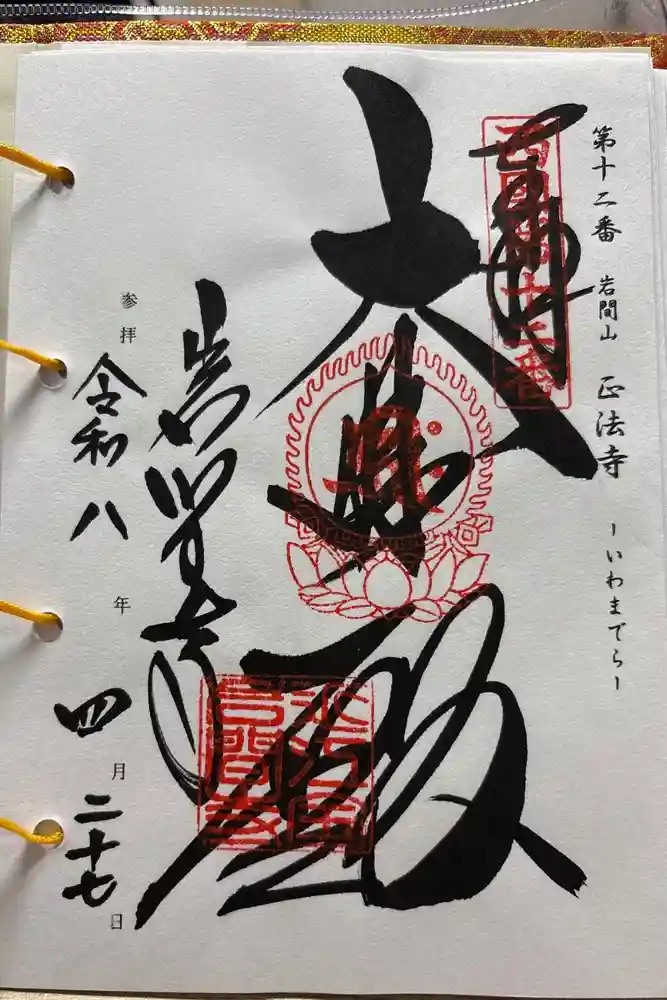 第十二番 岩間山 正法寺 ーいわまでらー
奉拝
西国第十二番
大悲殿
岩間寺
参拝 令和八年四月二十七日